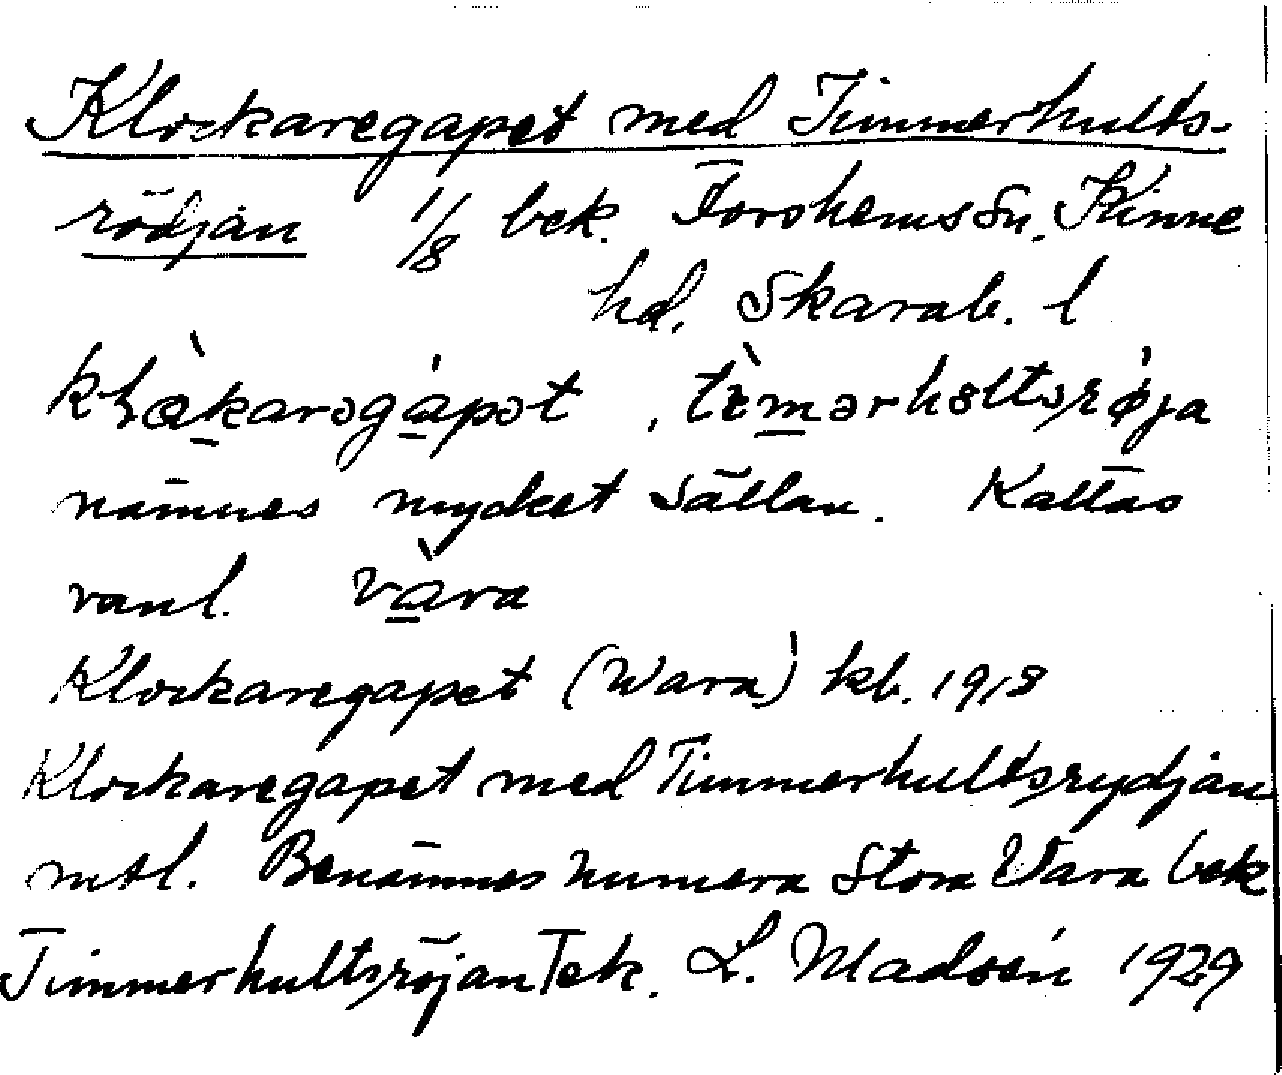 Klockaregapet med Timmerhults-
rödjan 1/8 bek. Forshems sn. Kinne
hd. Skarab. l
klàkarəgápət, tèmərhəltsrøja
nämnes mycket sällan. Kallas
vanl. vàra
Klockaregapet (Wara) kb. 1918
Klockaregapet med Timmerhultsrydjan
mtl. Benämnes numera Stora Vara bek
Timmerhultsröjan Tek. L. Madsén 1929